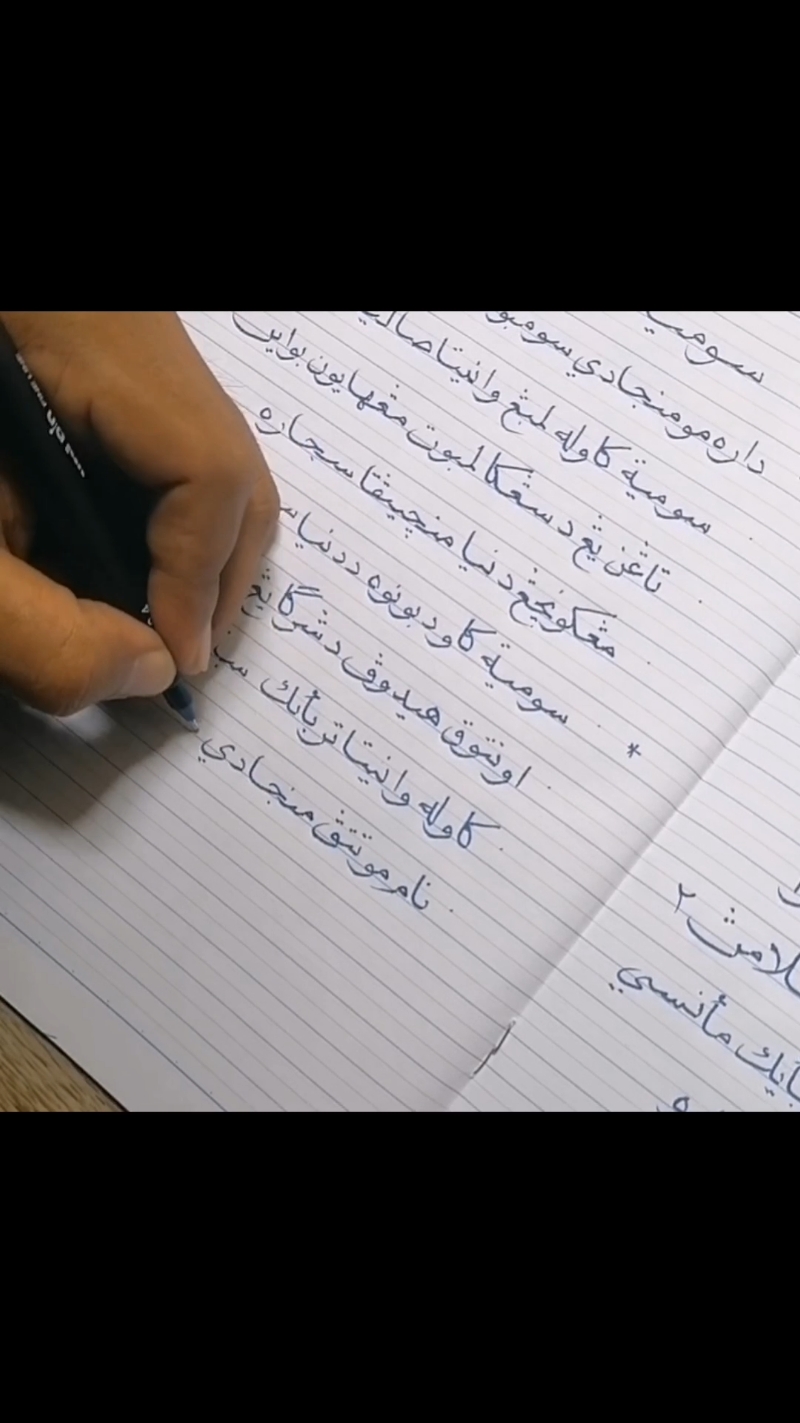 سومية
داره مو منجادي سومبو
سومية کاوله لمبڠ وانيتا صالحة
تاڠن يڠ د سڠکا لمبوت مڠهايون بواين
مڠکونچڠ دنيا منچيڤتا سجاره
سومية کاو دبونوه ددنيا
اونتوق هيدوڤ دشرݢا يڠ
کاوله وانيتا تربأيك
نام مو تتڤ منجادي
*
لامڽ ٢
بأيك مأنسي
uni